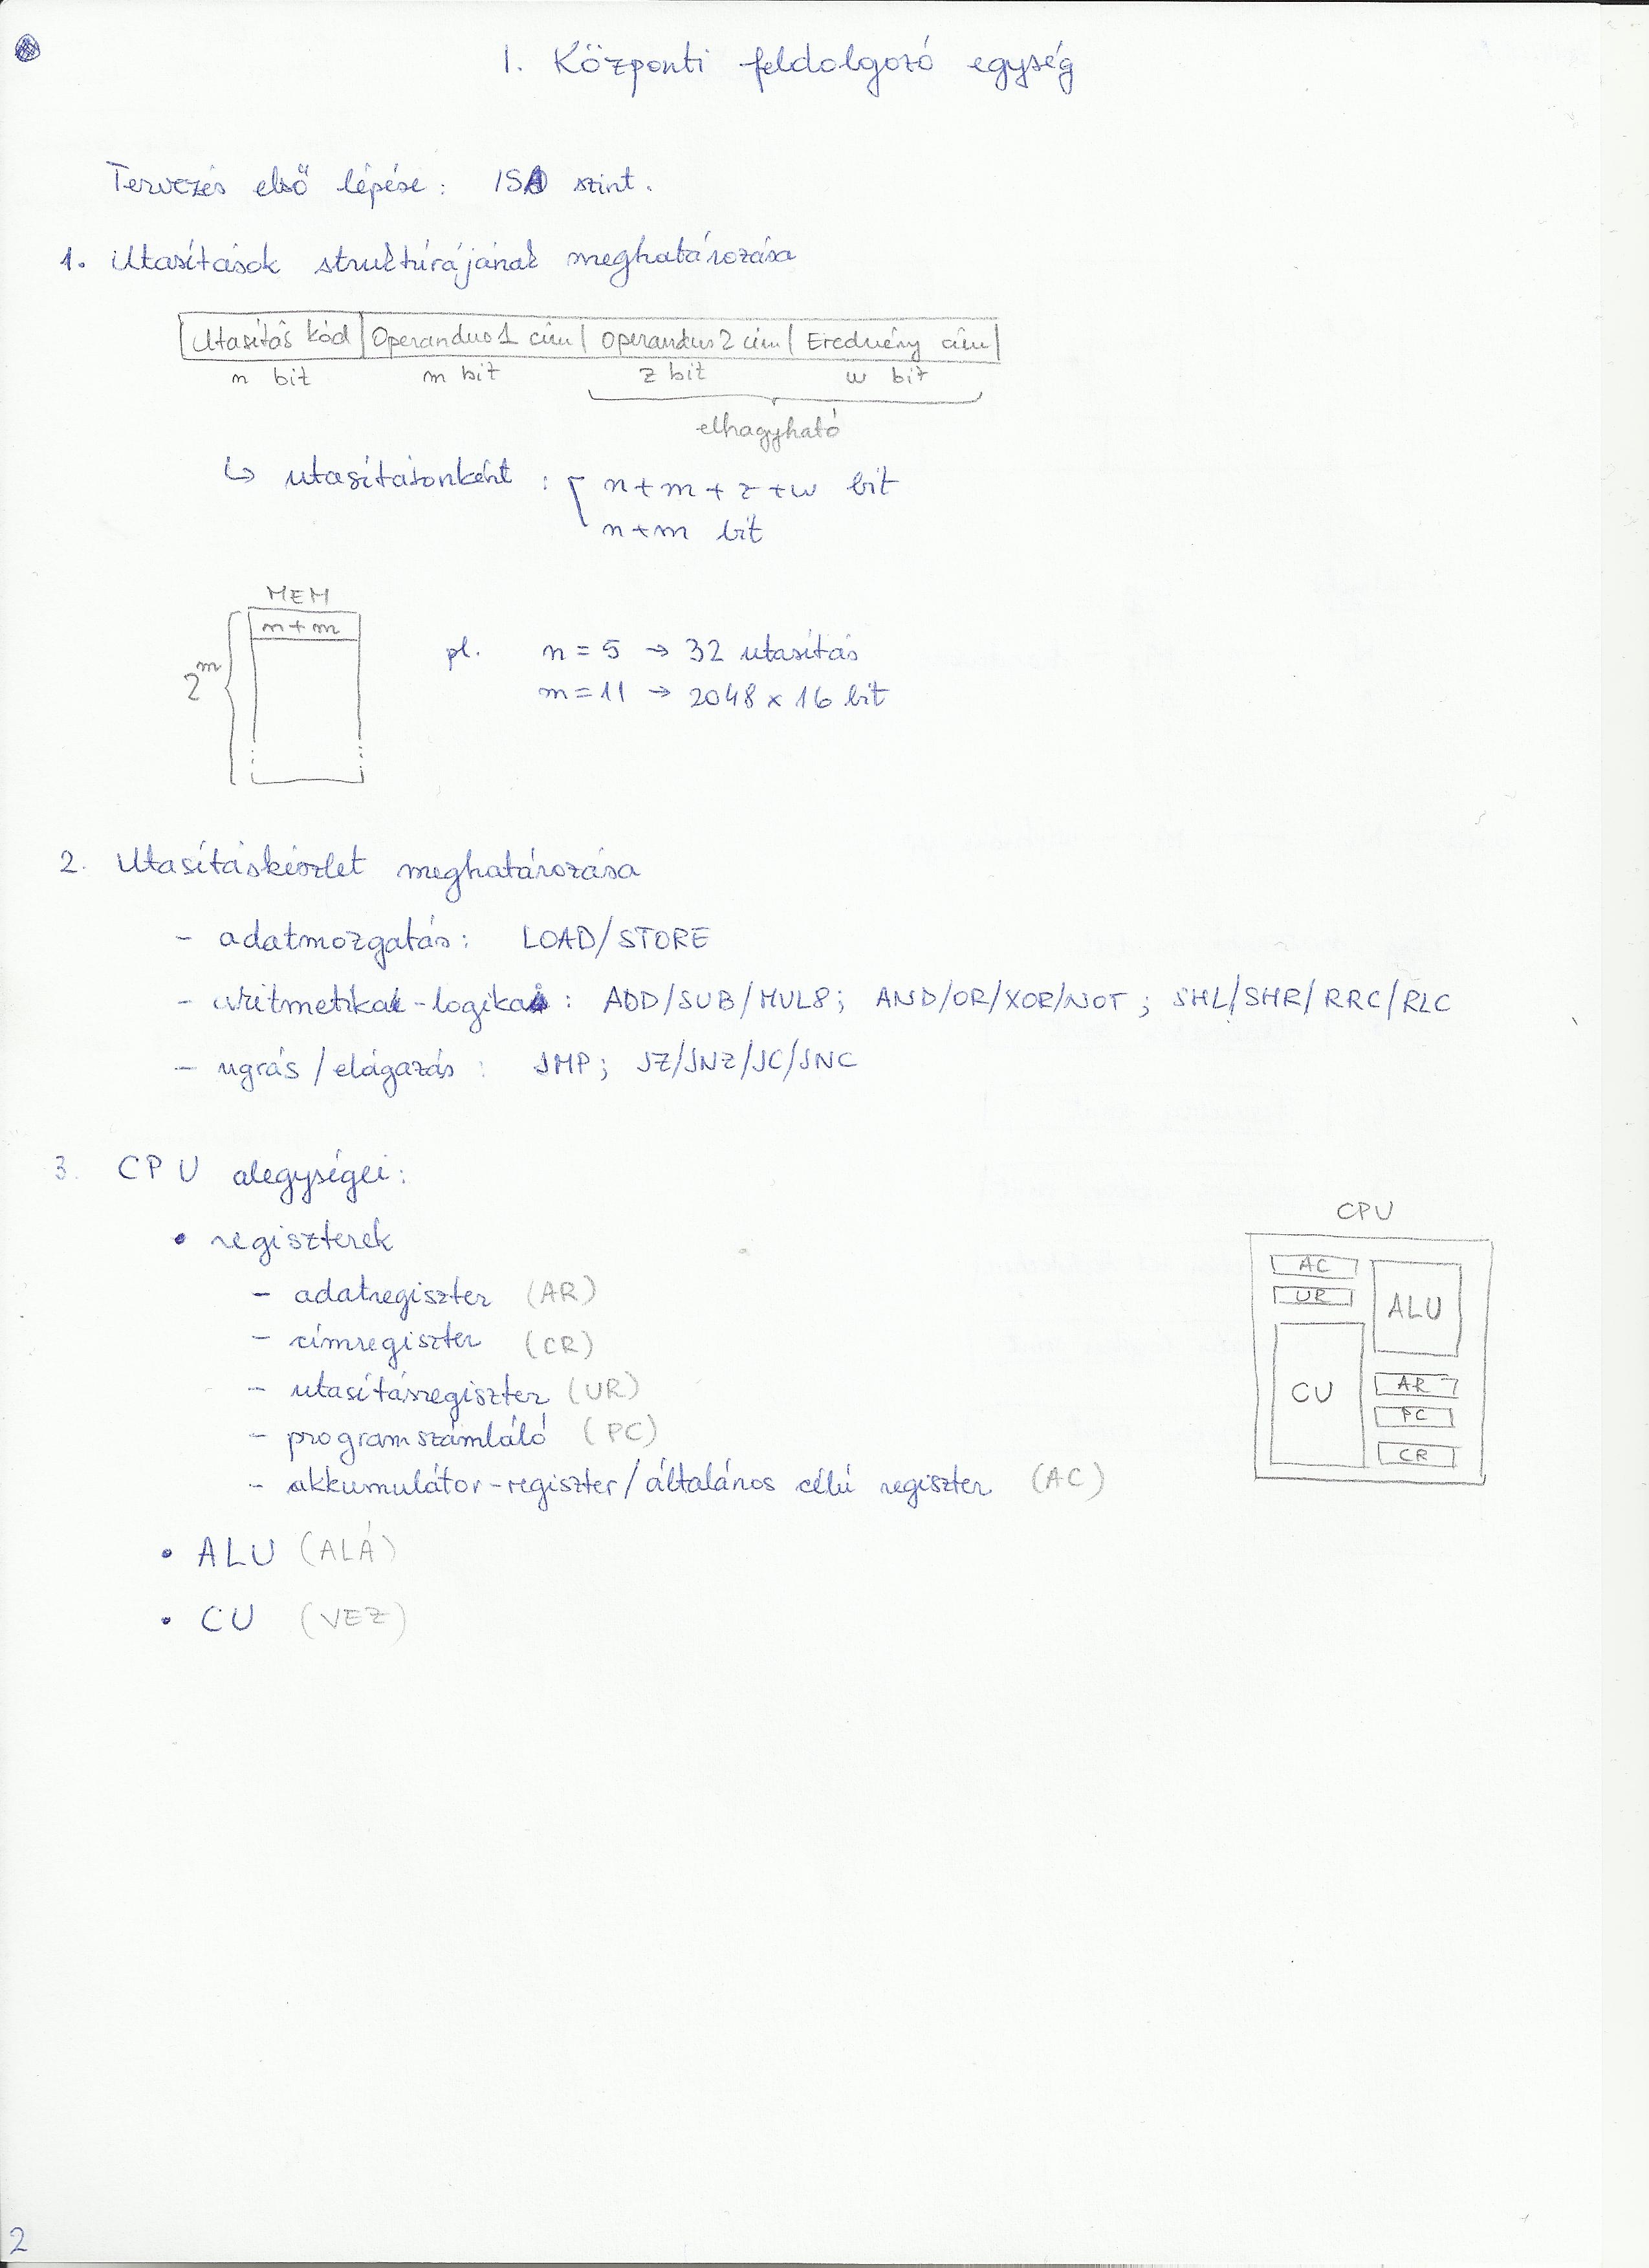 I. Központi feldolgozó egység
Tervezés első lépése: ISA szint.
1. Utasítások struktúrájának meghatározása
Utasítás kód | Operandus 1 cím | Operandus 2 cím | Eredmény cím
n bit m bit z bit w bit
elhagyható
↳ utasításonként : { n+m+z+w bit
n+m bit
MEM
n+m
2^m
pl. n=5 → 32 utasítás
m=11 → 2048 x 16 bit
2. Utasításkészlet meghatározása
- adatmozgatás: LOAD/STORE
- aritmetikai-logikai: ADD/SUB/MUL8; AND/OR/XOR/NOT; SHL/SHR/RRC/RLC
- ugrás/elágazás: JMP; JZ/JNZ/JC/JNC
3. CPU alegységei:
• regiszterek
- adatregiszter (AR)
- címregiszter (CR)
- utasításregiszter (UR)
- programszámláló (PC)
- akkumulátor-regiszter/általános célú regiszter (AC)
• ALU (ALÁ)
• CU (VEZ)
CPU
AC
UR
ALU
CU
AR
PC
CR
2